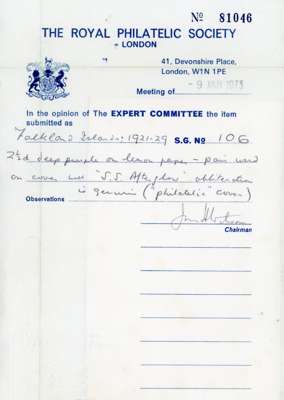 No 81046
THE ROYAL PHILATELIC SOCIETY
LONDON
41, Devonshire Place,
London, W1N 1PE
Meeting of - 9 JAN 1975
In the opinion of The EXPERT COMMITTEE the item
submitted as
Falkland Islands: 1921-29 S.G. No 106
2½d deep purple on lemon paper - pair used
on cover with "S.S. Afterglow" obliteration
is genuine ("philatelic" cover)
Observations
Chairman